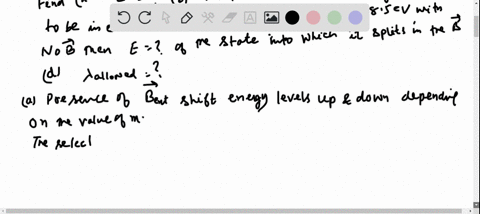 Find (a
8.5eV with
to be in e
No B⃗ Then E=? of the state into which it splits in the B⃗
(d) λallowed=?
(a) Presence of B⃗ext shift energy levels up & down depending
on the value of m.
The select